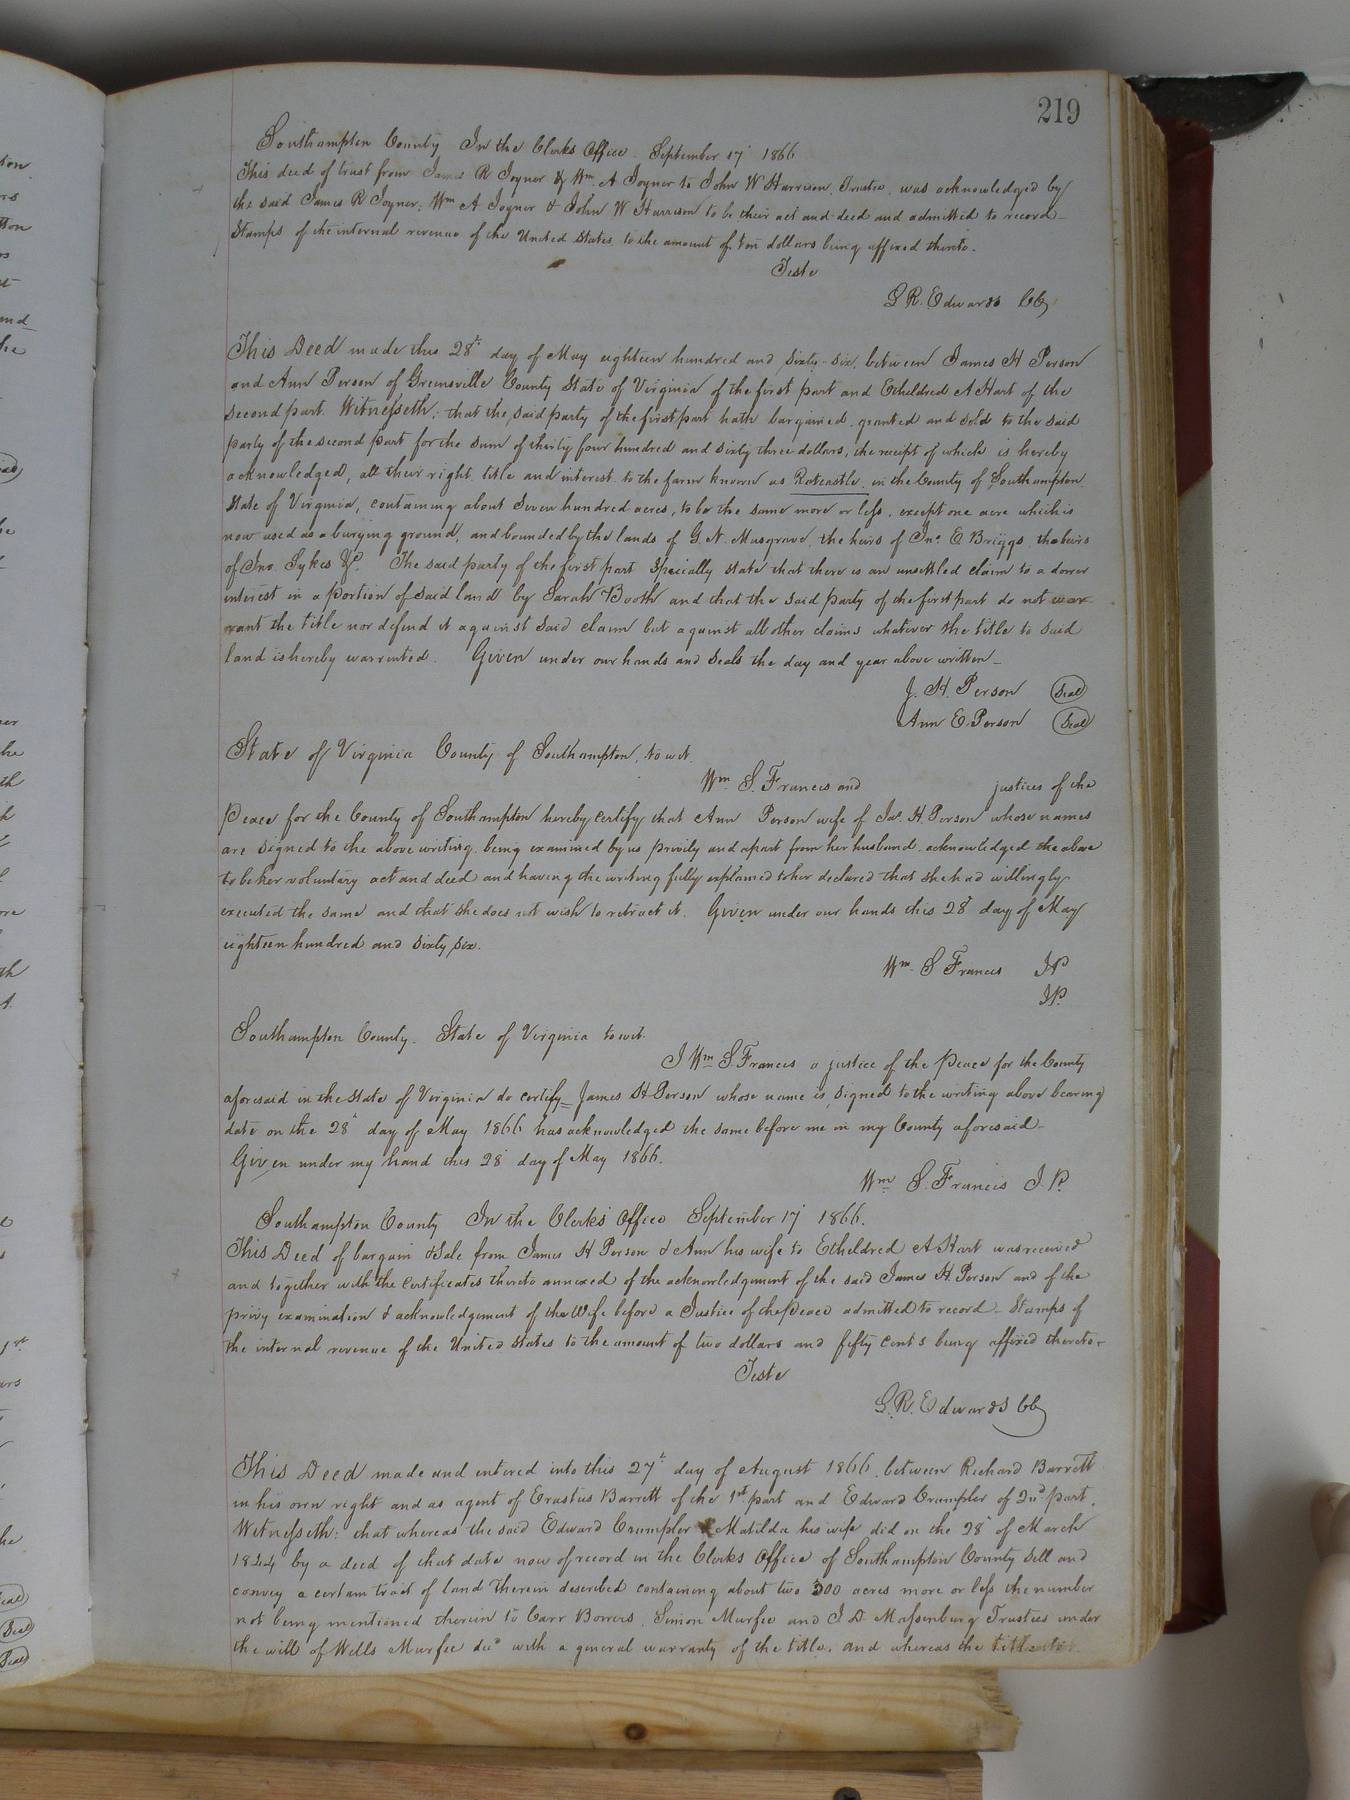 219
Southampton County In the Clerks Office September 17 1866
This deed of trust from James R Joyner & Wm A Joyner to John W Harrison, Trustee, was acknowledged by
the said James R Joyner, Wm A Joyner & John W Harrison to be their act and deed and admitted to record
Stamps of the internal revenue of the United States to the amount of ten dollars being affixed thereto.
Teste
L R. Edwards CC
This Deed made this 28th day of May eighteen hundred and sixty-six, between James H Person
and Ann Person of Greensville County State of Virginia of the first part and Etheldred A Hart of the
second part. Witnesseth; that the said party of the first part hath bargained, granted and sold to the said
party of the second part for the sum of thirty four hundred and sixty three dollars, the receipt of which is hereby
acknowledged, all their right, title and interest to the farm known as Rotcastle in the County of Southampton
State of Virginia, containing about Seven hundred acres, to be the same more or less, except one acre which is
now used as a burying ground, and bounded by the lands of G. N. Musgrave, the heirs of Jno. E Briggs, the heirs
of Jno. Sykes &c. The said party of the first part specially state that there is an unsettled claim to a dower
interest in a portion of said land by Sarah Booth and that the said party of the first part do not war-
rant the title nor defend it against said claim but against all other claims whatever the title to said
land is hereby warrented. Given under our hands and seals the day and year above written
J. H. Person (Seal)
Ann E. Person (Seal)
State of Virginia County of Southampton, to wit
Wm S. Francis and justices of the
Peace for the County of Southampton hereby certify that Ann Person wife of Jas. H. Person whose names
are signed to the above writing, being examined by us privily and apart from her husband, acknowledged the above
to be her voluntary act and deed and having the writing fully explained to her declared that she had willingly
executed the same and that she does not wish to retract it. Given under our hands this 28th day of May
eighteen hundred and sixty six.
Wm S Francis JP
JP.
Southampton County. State of Virginia to wit.
I Wm S Francis a justice of the Peace for the County
aforesaid in the State of Virginia do certify James H Person whose name is signed to the writing above bearing
date on the 28 day of May 1866 has acknowledged the same before me in my County aforesaid
Given under my hand this 28 day of May 1866.
Wm S. Francis J. P.
Southampton County In the Clerks Office September 17 1866.
This Deed of bargain & Sale from James H Person & Ann his wife to Etheldred A Hart was received
and together with the certificates thereto annexed of the acknowledgment of the said James H. Person and of the
privy examination & acknowledgement of the Wife before a Justice of the peace admitted to record - Stamps of
the internal revenue of the United States to the amount of two dollars and fifty cents being affixed thereto-
Teste
L. R. Edwards CC
This Deed made and entered into this 27th day of August 1866, between Richard Barrett
in his own right and as agent of Erastus Barrett of the 1st part and Edward Crumpler of 2nd part.
Witnesseth: that whereas the said Edward Crumpler & Matilda his wife did on the 28 of March
1844 by a deed of that date now of record in the Clerks Office of Southampton County sell and
convey a certain tract of land therein described containing about two 300 acres more or less the number
not being mentioned therein to Carr Bowers, Simon Murfee and J. D. Massenburg Trustees under
the will of Wells Murfee decd with a general warranty of the title, and whereas the title to